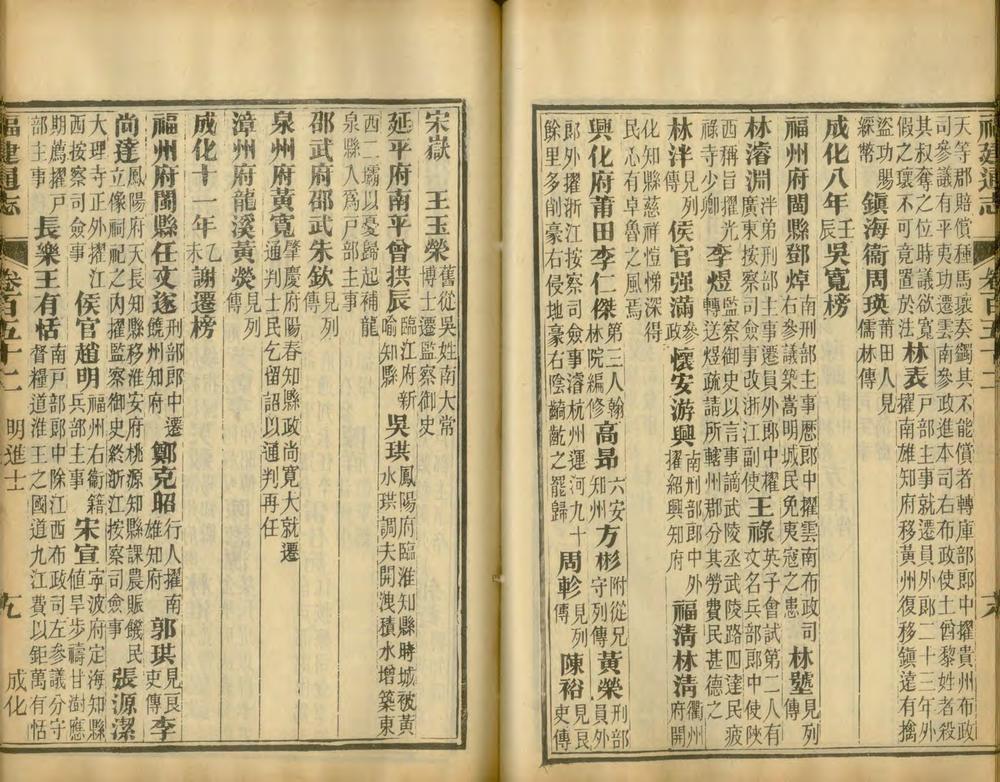 福建通志 卷百五十二
天等郡賠償種馬瓌奏蠲其不能償者轉庫部郎中擢貴州布政
司參議有平夷功遷雲南參政進本司右布政使土酋黎姓者殺
其叔奪之位時議欲寬 林表 戶部主事就遷員外郎二十三年外
假之瓌不可竟置於法 擢南雄知府移黃州復移鎮遠有擒
盜功賜 鎮海衞周瑛 莆田人見
綵幣 儒林傳
成化八年 壬辰 吳寬榜
福州府閩縣鄧焯 南刑部主事歷郎中擢雲南布政司 林壂 見列
右參議築嵩明城民免夷寇之患 傳
林濬淵 泮弟刑部主事遷員外郎中擢 王祿 英子會試第二人有
廣東按察司僉事改浙江副使 文名兵部郎中使陝
西稱旨擢光 李煜 監察御史以言事謫武陵丞武陵路四達民疲
祿寺少卿 轉送煜疏請所轄州郡分其勞費民甚德之
林泮 見列 侯官强滿 參 懷安游興 南刑部郎中外 福淸林淸 衢州
傳 政 擢紹興知府 府開
化知縣慈祥愷悌深得
民心有卓魯之風焉
興化府莆田李仁傑 第三人翰 高昂 六安 方彬 附從兄 黃榮 刑部
林院編修 知州 守列傳 員外
郎外擢浙江按察司僉事濬杭州運河九十 周軫 見列 陳裕 見良
餘里多削豪右侵地豪右陰齮齕之罷歸 傳 吏傳
宋嶽 王玉榮 舊從吳姓南大常
博士遷監察御史
延平府南平曾拱辰 臨江府新 吳珙 鳳陽府臨淮知縣時城被黃
喻知縣 水珙調夫開洩積水增築東
西二壩以憂歸起補龍
泉縣人爲戶部主事
邵武府邵武朱欽 見列
傳
泉州府黃寬 肇慶府陽春知縣政尚寬大就遷
通判士民乞留詔以通判再任
漳州府龍溪黃熒 見列
傳
成化十一年 乙未 謝遷榜
福州府閩縣任文遂 刑部郎中遷 鄭克昭 行人擢南 郭珙 見良 李
饒州知府 雄知府 吏傳
尚達 鳳陽府天長知縣移淮安府桃源知縣課農賑饑民 張源潔
立像祠祀之內擢監察御史終浙江按察司僉事
大理寺正外擢江 侯官趙明 福州右衞籍 宋宣 寧波府定海知縣
西按察司僉事 兵部主事 値旱步禱甘澍應
期薦擢戶 長樂王有恬 南戶部郎中除江西布政司左參議分守
部主事 督糧道淮王之國道九江費以鉅萬有恬
福建通志 卷百五十二 明進士 九 成化